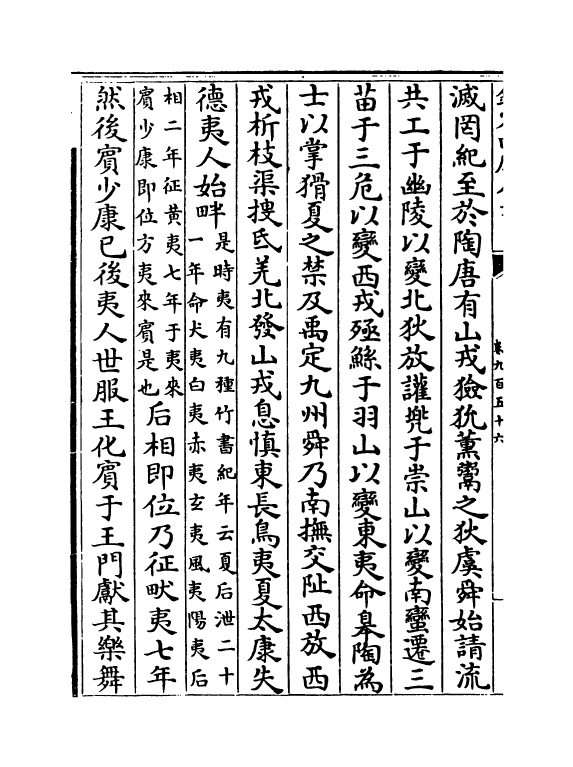 卷九百五十六
滅罔紀至於陶唐有山戎獫狁薰鬻之狄虞舜始請流
共工于幽陵以變北狄放讙兠于崇山以變南蠻遷三
苗于三危以變西戎殛鯀于羽山以變東夷命皋陶為
士以掌猾夏之禁及禹定九州舜乃南撫交阯西放西
戎析枝渠搜氐羌北發山戎息慎東長鳥夷夏太康失
德夷人始畔是時夷有九種竹書紀年云夏后泄二十
一年命犬夷白夷赤夷玄夷風夷陽夷后
相二年征黄夷七年于夷來
賓少康即位方夷來賓是也后相即位乃征畎夷七年
然後賓少康已後夷人世服王化賓于王門獻其樂舞